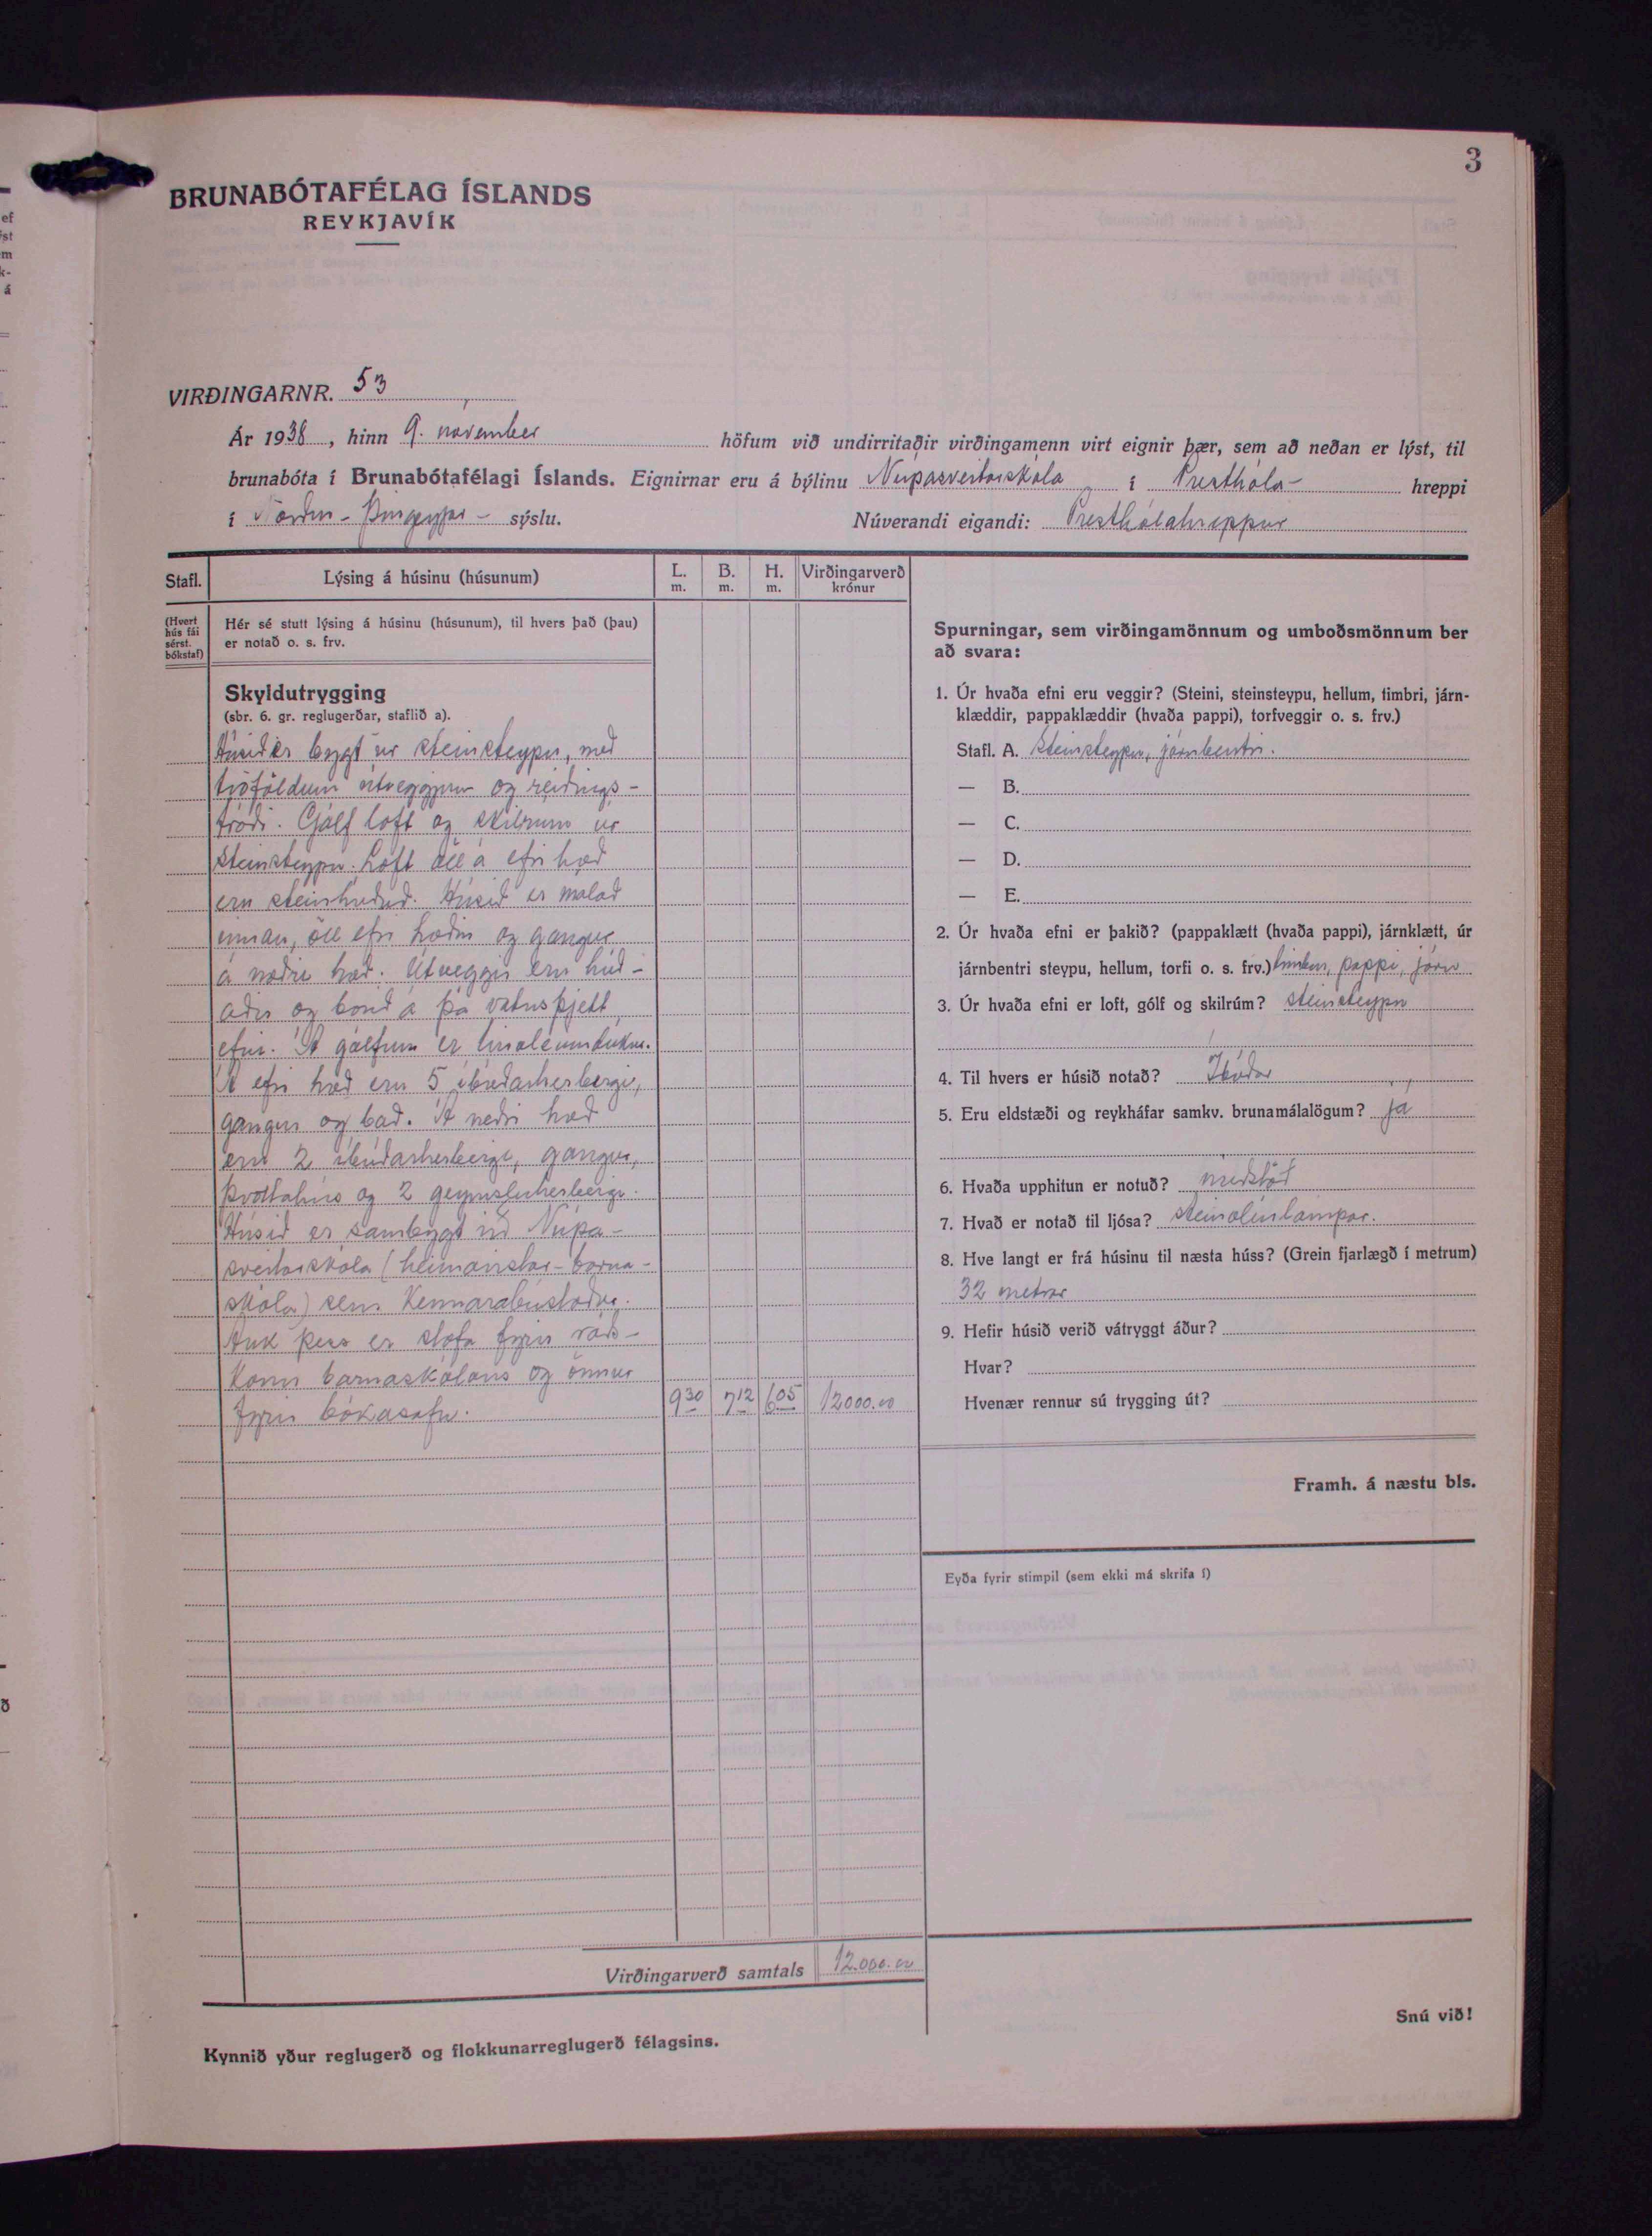 3
BRUNABÓTAFÉLAG ÍSLANDS
REYKJAVÍK
VIRÐINGARNR. 53
Ár 1938, hinn 9. nóvember höfum við undirritaðir virðingamenn virt eignir þær, sem að neðan er lýst, til
brunabóta í Brunabótafélagi Íslands. Eignirnar eru á býlinu Núpasveitarskóla í Presthóla- hreppi
í Norður-Þingeyjar- sýslu. Núverandi eigandi: Presthólahreppur
Stafl. Lýsing á húsinu (húsunum) L. m. B. m. H. m. Virðingarverð krónur
(Hvert hús fái sérst. bókstaf)
Hér sé stutt lýsing á húsinu (húsunum), til hvers það (þau)
er notað o. s. frv.
Skyldutrygging
(sbr. 6. gr. reglugerðar, staflið a).
Húsið er bygt úr steinsteypu, með
tvöföldum útveggjum og reiðings-
tróði. Gólf loft og skilrúm úr
steinsteypu. Loft öll á efri hæð
eru steinhúðuð. Húsið er málað
innan, öll efri hæðin og gangur
á neðri hæð. Útveggir eru húð-
aðir og borið á þá vatnsþjett
efni. Á gólfum er linoleumdúkur.
Á efri hæð eru 5 íbúðarherbergi,
gangur og bað. Á neðri hæð
eru 2 íbúðarherbergi, gangur,
þvottahús og 2 geymsluherbergi.
Húsið er sambygt við Núpa-
sveitarskóla (heimavistar-barna-
skóla) sem kennarabústaður.
Auk þess er stofa fyrir ráðs-
konu barnaskólans og önnur
fyrir bókasafn. 9 30 7 12 6 05 12000.00
Virðingarverð samtals 12.000.00
Kynnið yður reglugerð og flokkunarreglugerð félagsins.
Spurningar, sem virðingamönnum og umboðsmönnum ber
að svara:
1. Úr hvaða efni eru veggir? (Steini, steinsteypu, hellum, timbri, járn-
klæddir, pappaklæddir (hvaða pappi), torfveggir o. s. frv.)
Stafl. A. Steinsteypu, járnbentri.
— B.
— C.
— D.
— E.
2. Úr hvaða efni er þakið? (pappaklætt (hvaða pappi), járnklætt, úr
járnbentri steypu, hellum, torfi o. s. frv.) timbur, pappi, járn
3. Úr hvaða efni er loft, gólf og skilrúm? steinsteypu
4. Til hvers er húsið notað? Íbúðar
5. Eru eldstæði og reykháfar samkv. brunamálalögum? já
6. Hvaða upphitun er notuð? miðstöð
7. Hvað er notað til ljósa? steinolíulampar.
8. Hve langt er frá húsinu til næsta húss? (Grein fjarlægð í metrum)
32 metrar
9. Hefir húsið verið vátryggt áður?
Hvar?
Hvenær rennur sú trygging út?
Framh. á næstu bls.
Eyða fyrir stimpil (sem ekki má skrifa í)
Snú við!